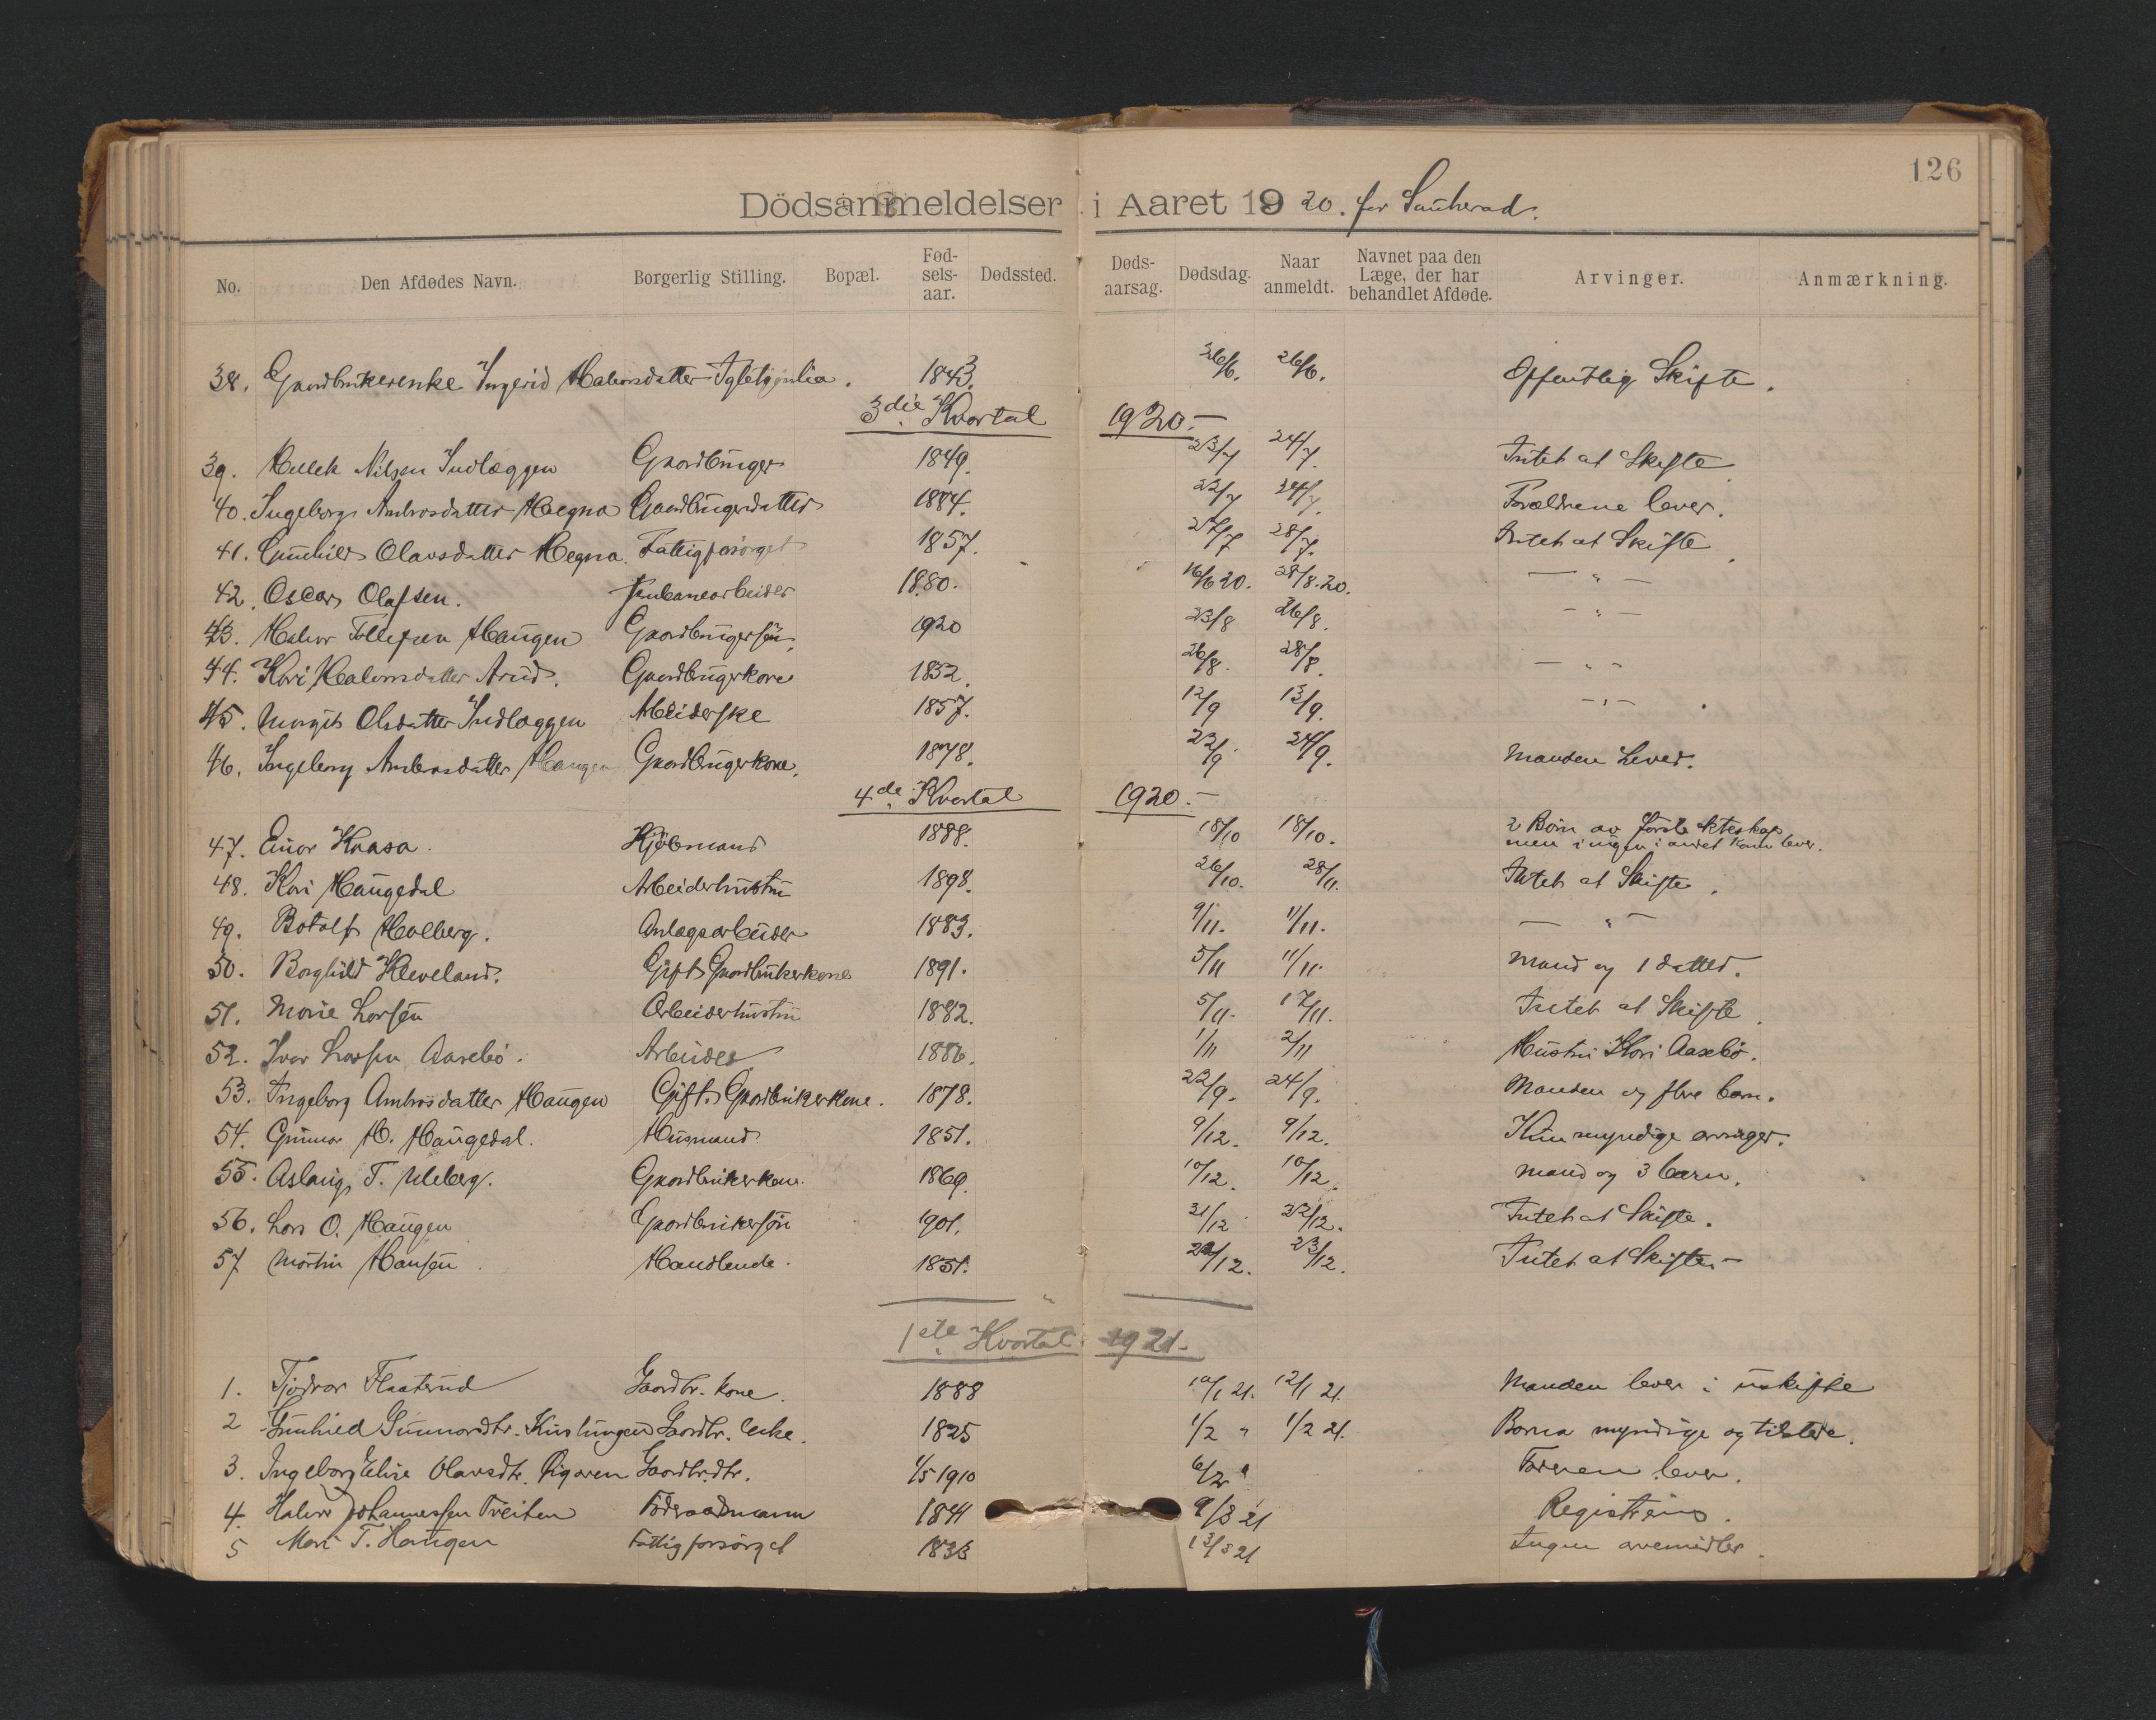 126
Dödsanmeldelser i Aaret 1920. for Sauherad.
No. Den Afdødes Navn. Borgerlig Stilling. Bopæl. Fødselsaar. Dødssted. Dødsaarsag. Dødsdag. Naar anmeldt. Navnet paa den Læge, der har behandlet Afdøde. Arvinger. Anmærkning.
38. Gaardbrukerenke Ingerid Halvorsdatter 1843. 26/6. 26/6. Offentlig Skifte.
3die Kvartal 1920.—
39. Nilsen Indlæggen Gaardbruger 1849. 23/7 24/7. Intet at Skifte
40. Ingeborg Ambrosdatter Hegna Gaardbrugerdatter 1884. 22/7 24/7. Forældrene lever.
41. Gunhild Olavsdatter Hegna. Fattigforsørget 1857. 27/7 28/7. Intet at Skifte
42. Oscar Olafsen. Jernbanearbeider 1880. 16/6 20. 28/8.20. — " —
43. Halvor Tollefsen Haugen Gaardbrugersøn, 1920 23/8 26/8. — " —
44. Kari Halvorsdatter Arud. Gaardbrugerkone 1852. 26/8. 28/8. — " —
45. Margit Olsdatter Indlæggen Arbeiderske 1857. 12/9 13/9. — " —
46. Ingeborg Ambrosdatter Haugen Gaardbrugerkone. 1878. 22/9 24/9. Manden Lever.
4de Kvartal 1920.—
47. Einar Kaasa. Kjöbmand 1888. 18/10 18/10. 2 Börn av første ekteskap
men ingen i andet. Kone lever.
48. Kari Haugedal Arbeiderhustru 1898. 26/10. 28/11. Intet at Skifte.
49. Botolf Holberg. Anlægsarbeider 1883. 9/11. 11/11. — " —
50. Borghild Kleveland. Gift Gaardbrukerkone 1891. 5/11 11/11. Mand og 1 datter.
51. Marie Larsen Arbeiderhustru 1882. 5/11. 17/11. Intet at Skifte.
52. Ivar Larsen Aasebö. Arbeider 1886. 1/11 2/11 Hustru Kari Aasebö.
53. Ingeborg Ambrosdatter Haugen Gift. Gaardbrukerkone. 1878. 22/9. 24/9. Manden og flere barn.
54. Gunnar H. Haugedal. Husmand 1851. 9/12. 9/12. Kun myndige arvinger.
55. Aslaug T. Uleberg. Gaardbrukerkone. 1869. 10/12. 10/12. Mand og 3 barn.
56. Lars O. Haugen Gaardbrukersøn 1901. 21/12 22/12. Intet at Skifte.
57 Martin Hansen. Handlende. 1851. 22/12. 23/12. Intet at Skifte.—
1ste Kvartal 1921.
1. Flaaterud Gaardbr. kone. 1888 10/1 21. 12/1 21. Manden lever i uskifte
2 Gunhild Gunnarsdtr. Gaardbr. Enke. 1825 1/2 " 1/2 21. Barna myndige og tilstede.
3. Ingeborg Elise Olavsdtr. Gaardbr.dtr. 1/5 1910 6/2 " Faderen lever.
4. Halvor Johannessen Treiten Föderaadmann 1841 9/3 21 Registrering.
5 Mari T. Haugen Fattigforsörget 1833 13/3 21 Ingen arvemidler.